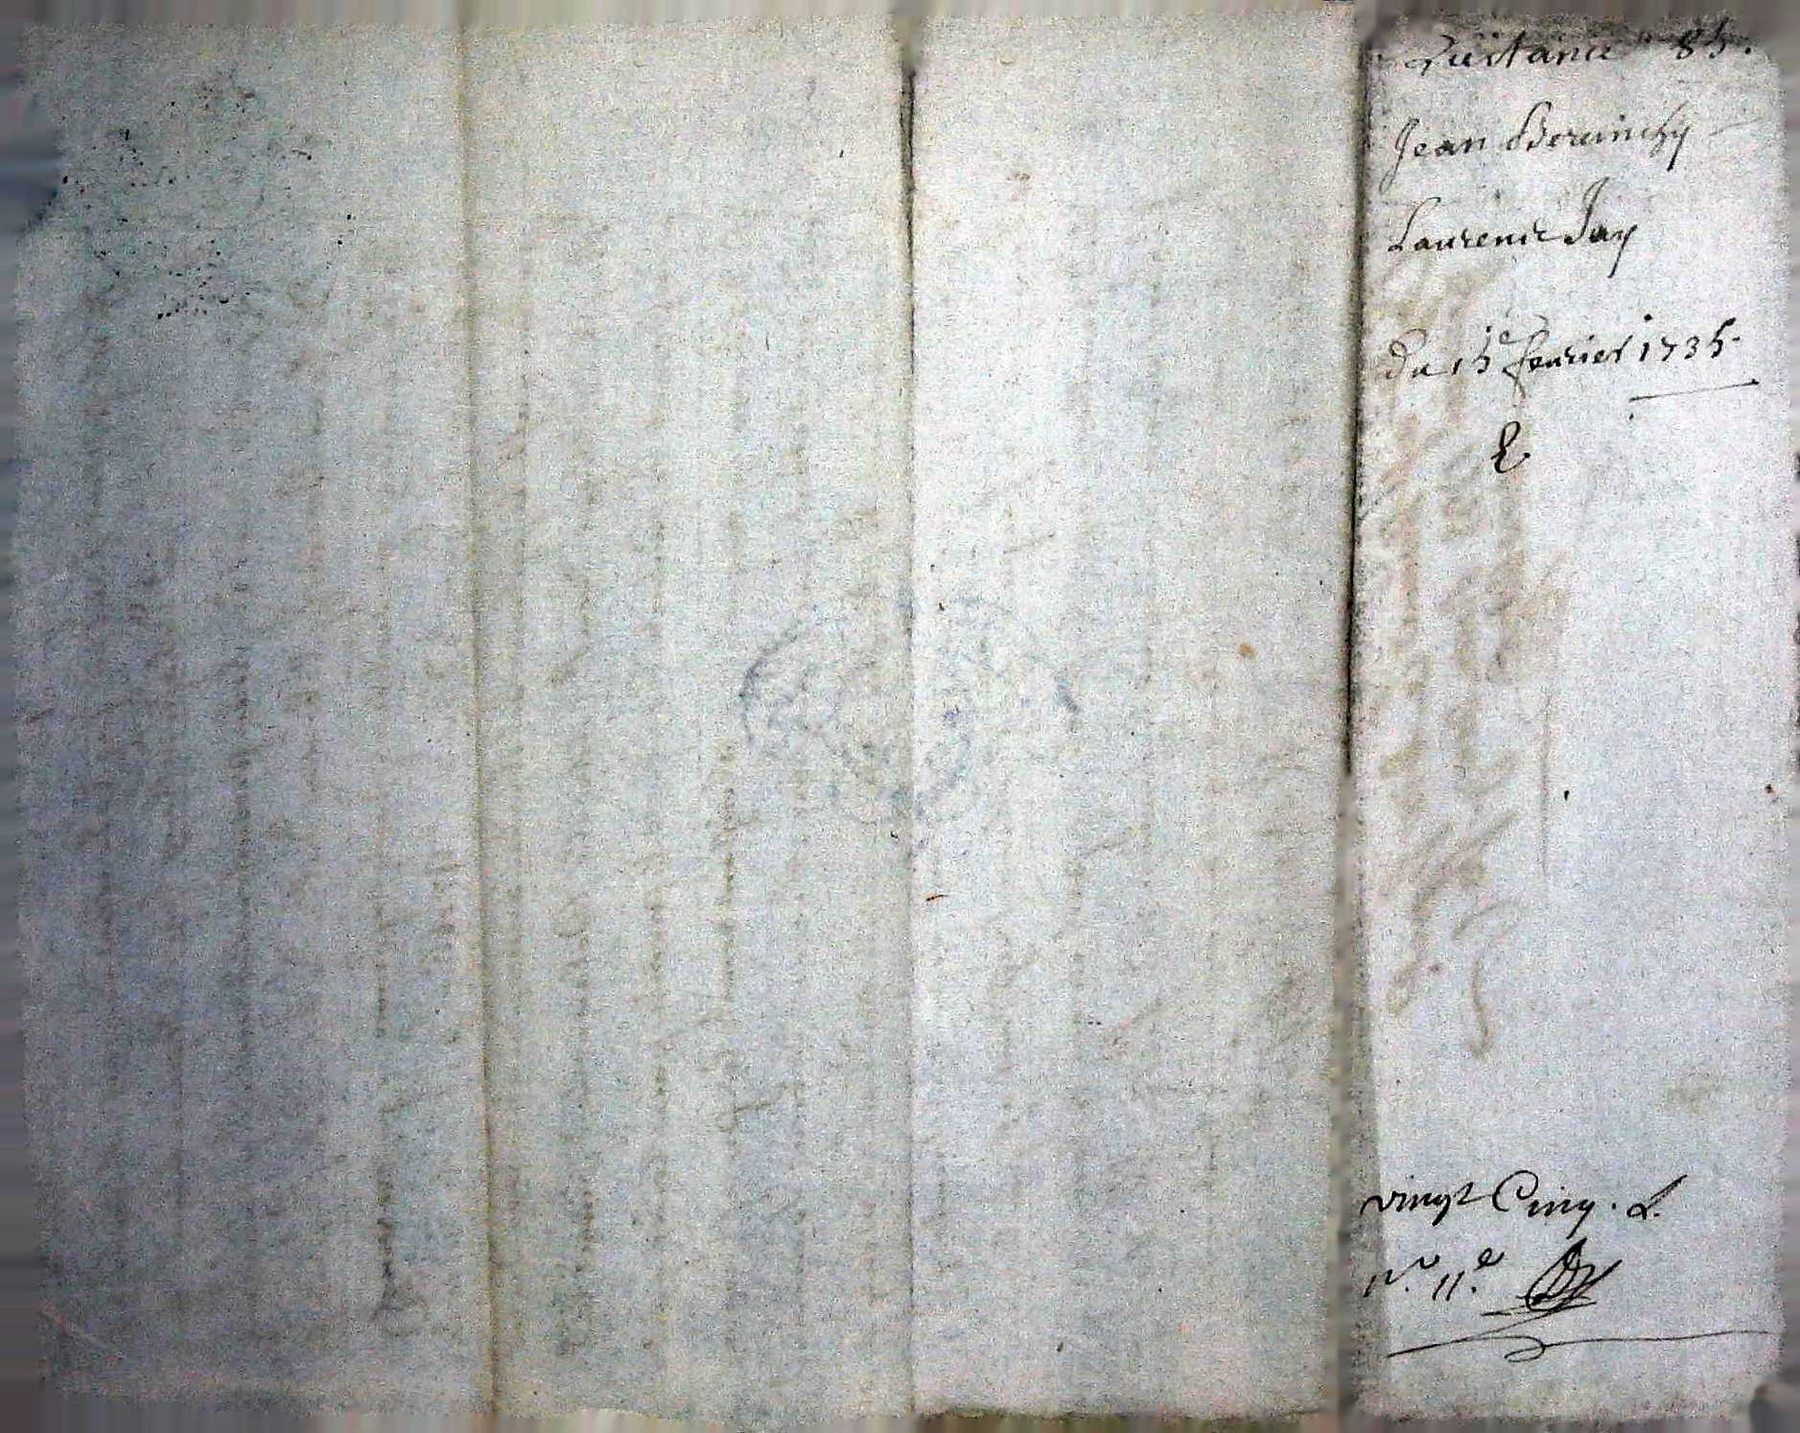 Quittance 85.
Jean
Laurent Jay
Du 15e feurier 1735.
E
vingt Cinq. L.
No. 11e.